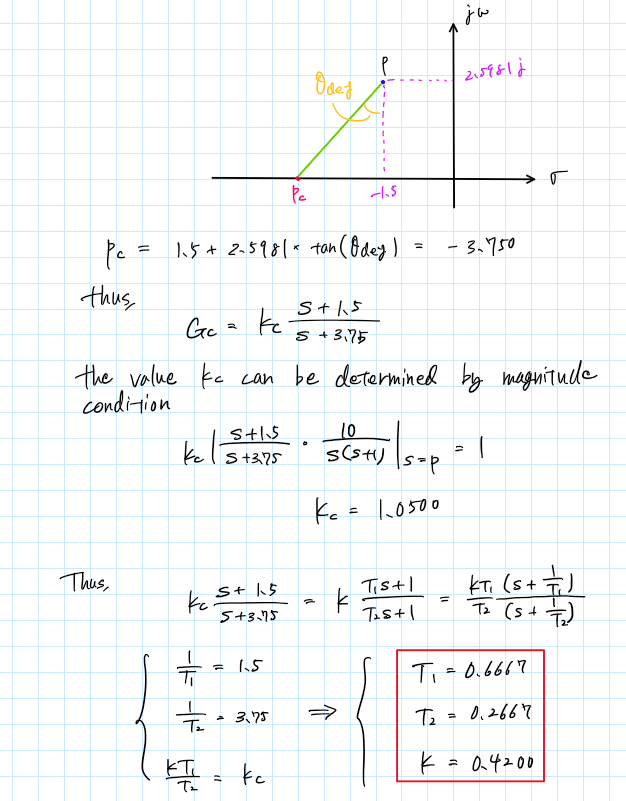 jω
P
2.5981j
θdeg
σ
Pc
-1.5
Pc = 1.5 + 2.5981 * tan(θdeg) = - 3.750
thus,
Gc = Kc (s + 1.5)/(s + 3.75)
the value Kc can be determined by magnitude
condition
Kc | (s+1.5)/(s+3.75) · 10/(s(s+1)) |s=p = 1
Kc = 1.0500
Thus,
Kc (s + 1.5)/(s+3.75) = K (T1s+1)/(T2s+1) = (KT1/T2) (s + 1/T1)/(s + 1/T2)
{ 1/T1 = 1.5 ⇒ { T1 = 0.6667
1/T2 = 3.75 T2 = 0.2667
KT1/T2 = Kc K = 0.4200